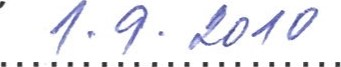 1. 9. 2010